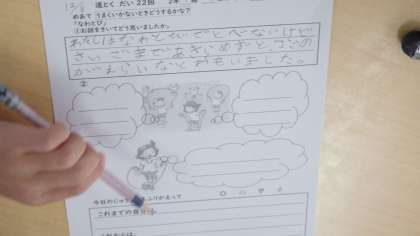 12/8 道とく だい 22回 2年
めあて うまくいかないときどうするかな?
「なわとび」
①お話をきいてどう思いましたか。
わたしはなわとびでとべないけど
さいごまであきらめずと
がえらいなとおもいました。
②
今日のじゅ ふりかえって
これまでの自分
これからは、